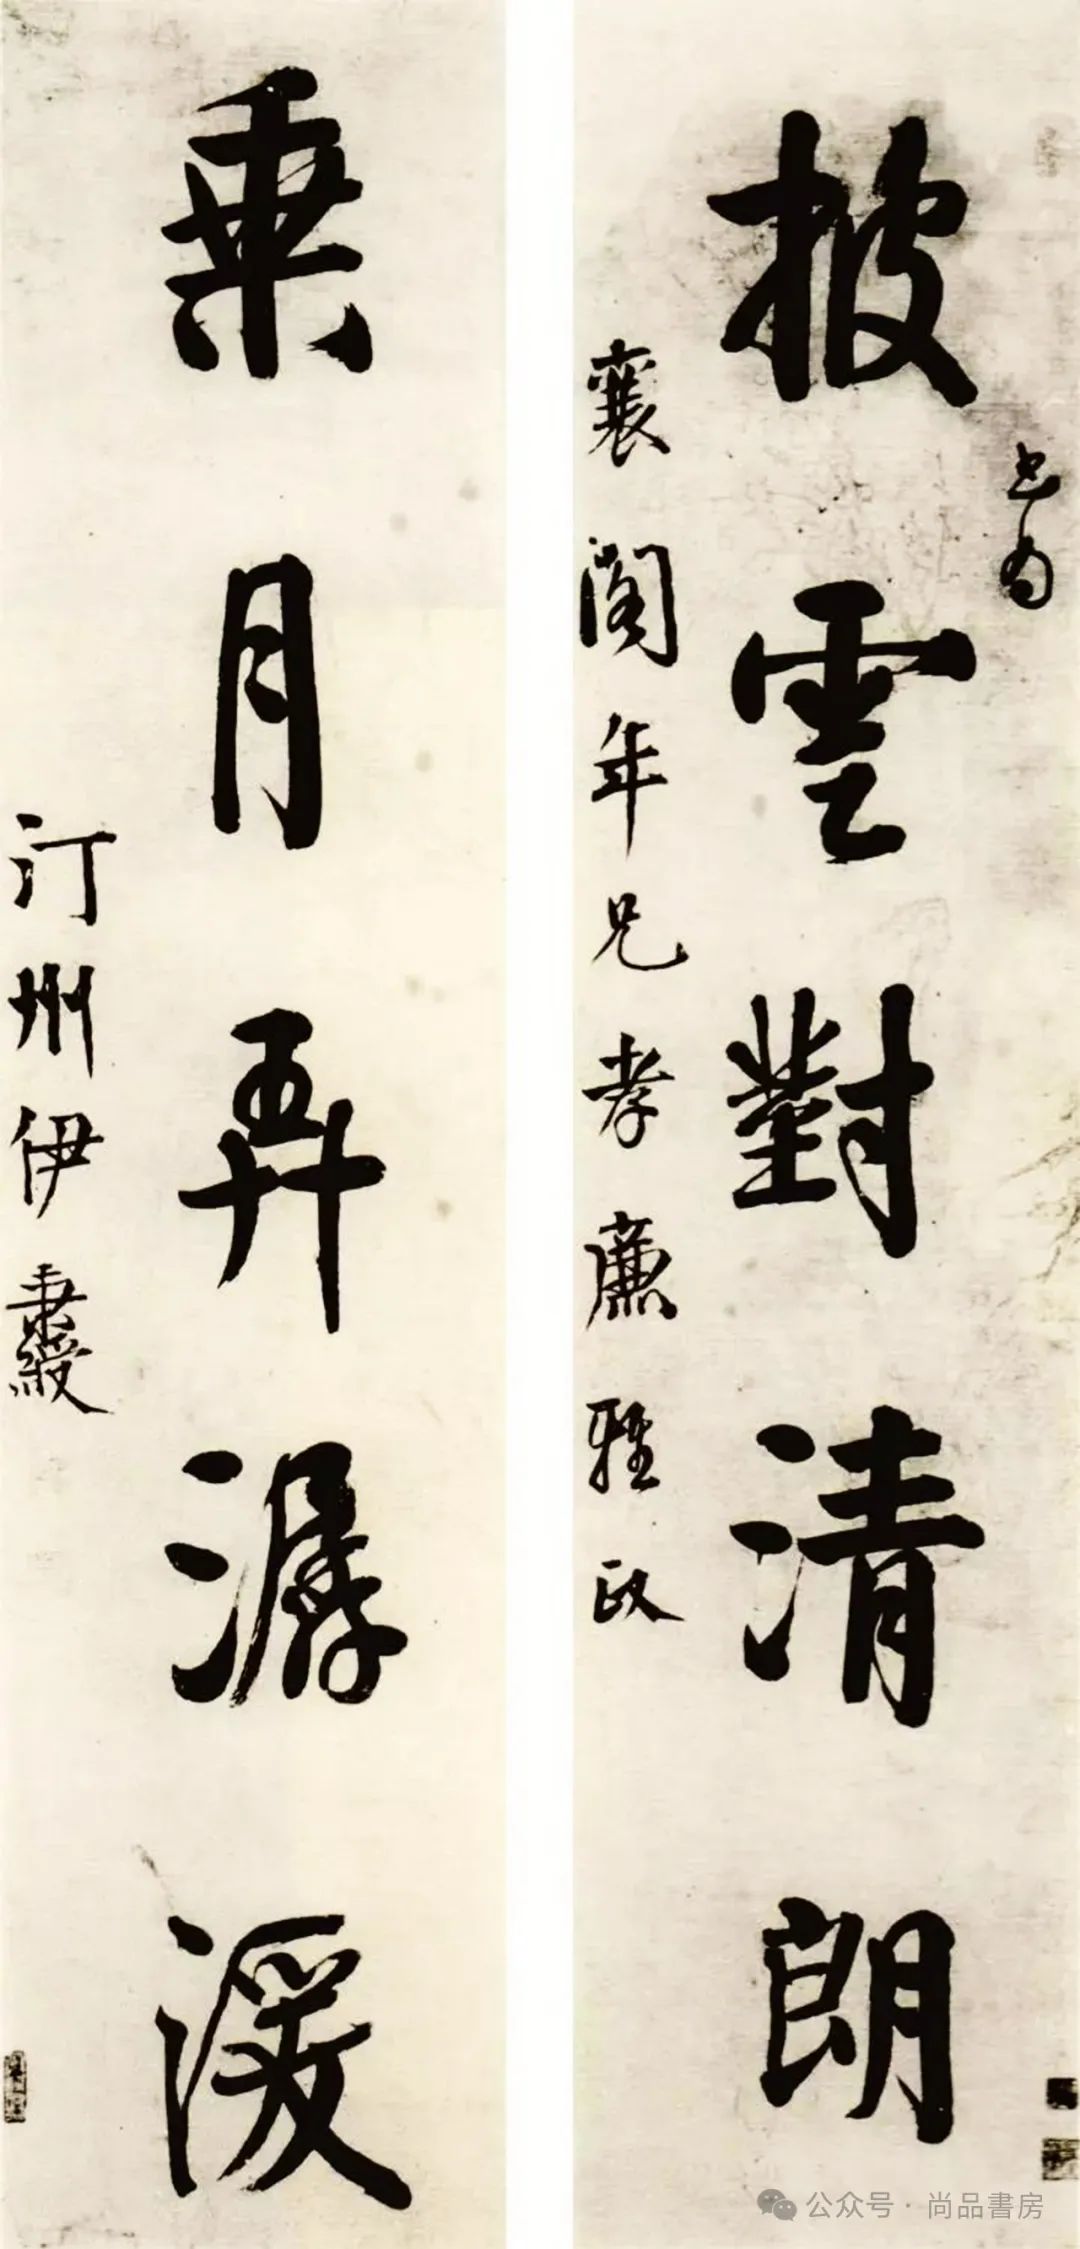 書為
披雲對清朗
襄閣年兄孝廉雅政
乘月弄潺湲
汀州伊秉綬
公众号 · 尚品書房